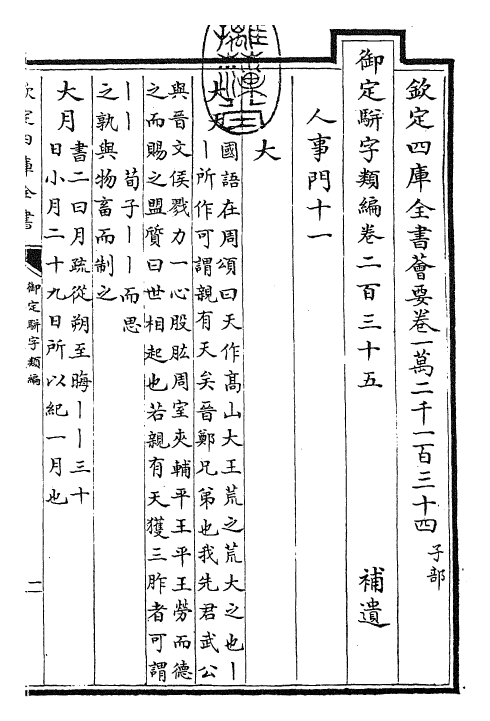 欽定四庫全書薈要卷一萬二千一百三十四 子部
御定駢字類編卷二百三十五 補遺
人事門十一
大
大天國語在周頌曰天作高山大王荒之荒大之也丨
丨所作可謂親有天矣晉鄭兄弟也我先君武公
與晉文侯戮力一心股肱周室夾輔平王平王勞而德
之而賜之盟質曰世相起也若親有天獲三胙者可謂
丨丨 荀子丨丨而思
之孰與物畜而制之
大月書二曰月疏從朔至晦丨丨三十
日小月二十九日所以紀一月也
欽定四庫全書
御定駢字類編
二